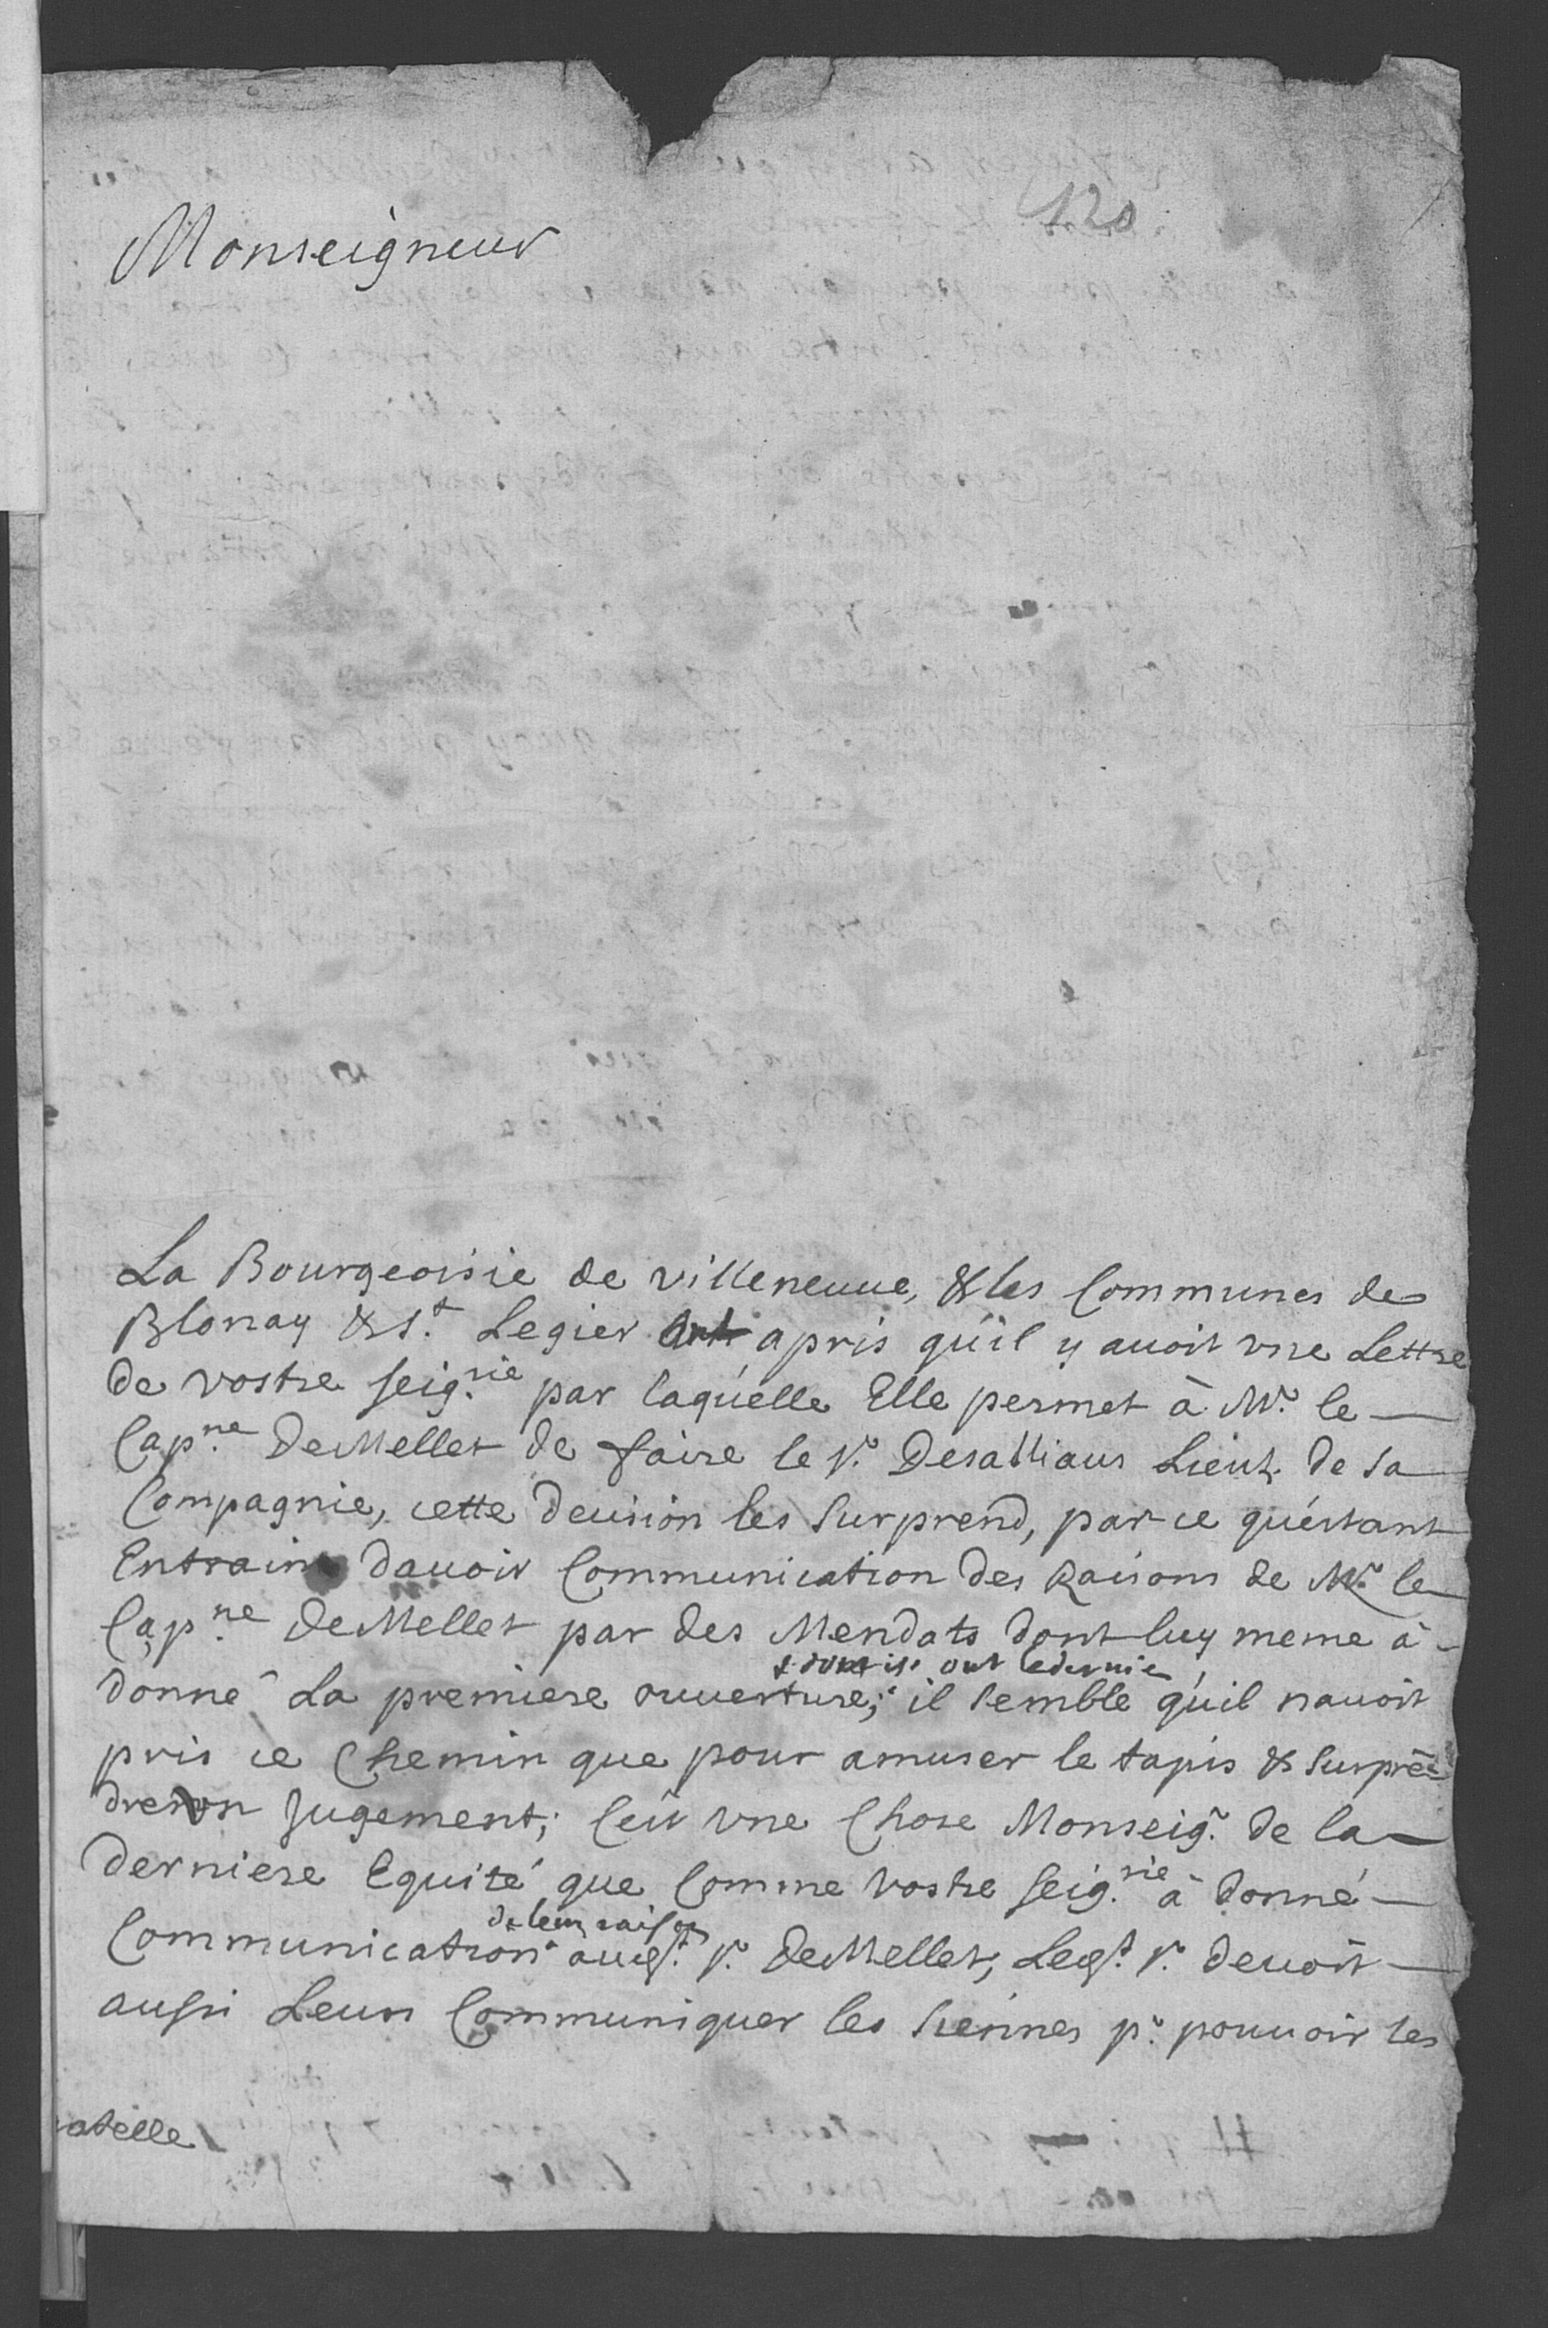 120
Monseigneur
La Bourgeoisie de villeneuue, & les Communes de
Blonay & St. Legier Ont apris qu'il y auoit vne Lettre
de vostre seig.rie par laquelle Elle permet à Mr. le
Capne. DeMellet de faire le Sr. Desalliaus Lieut. de sa
Compagnie, cette decision les surprend, par ce qu'estant
Entrain dauoir Communication des Raisons de Mr. le
Capne. DeMellet par des Mendats dont luy meme à
dont ils ont le dernie
donné La premiere ouuerture; il semble qu'il nauoit
pris ce Chemin que pour amuser le tapis & surprē-
dre vn Jugement; Cest vne Chose Monseigr. de la
derniere Equité que Comme vostre seig.rie à donné
de leurs raisons
Communication audt. Sr. DeMellet, Ledt. Sr. deuoit
aussi Leurs Communiquer les siennes pr. pouuoir les
atelle